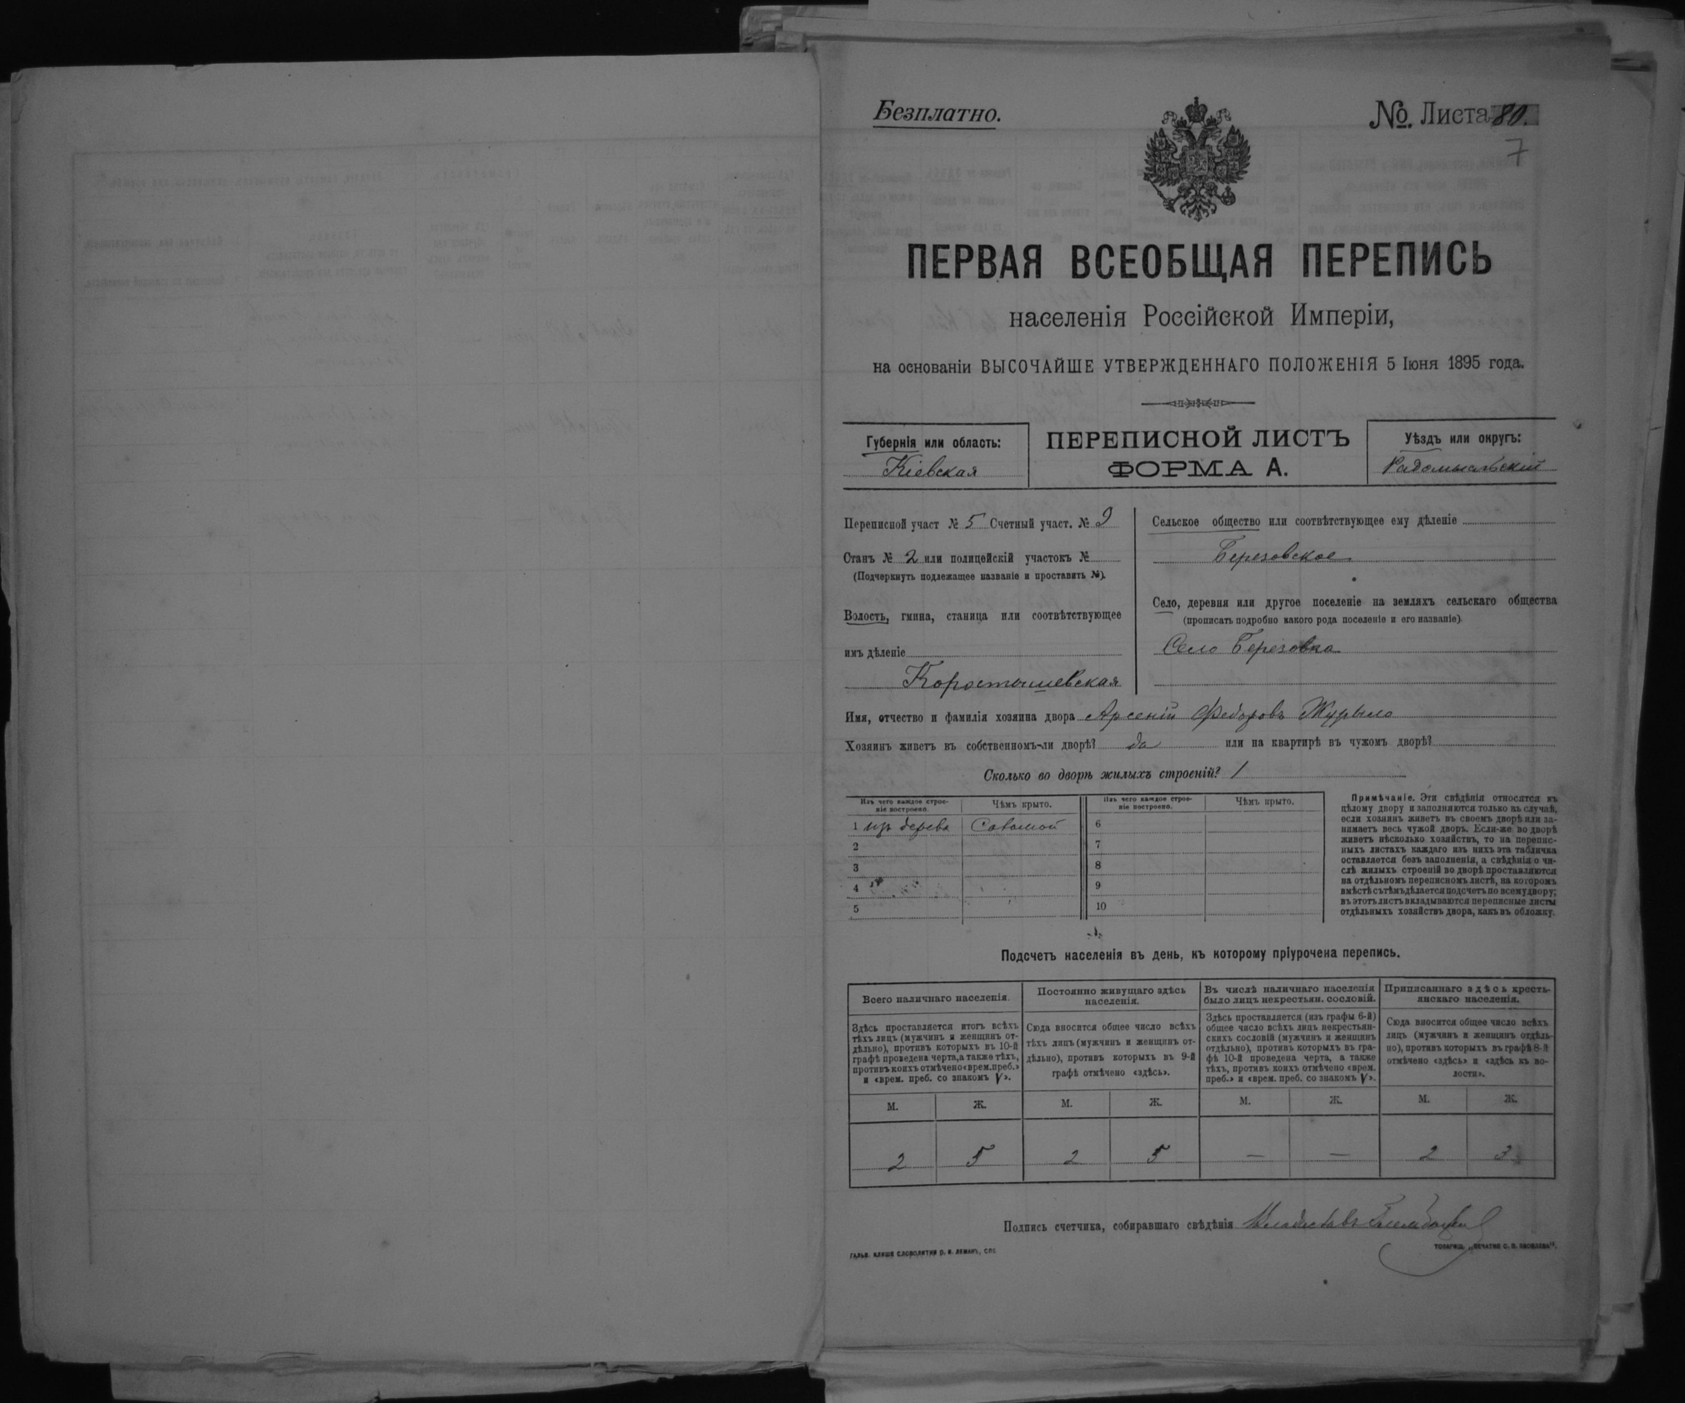 Безплатно.
№. Листа 80.
7
ПЕРВАЯ ВСЕОБЩАЯ ПЕРЕПИСЬ
населенія Россійской Имперіи,
на основаніи ВЫСОЧАЙШЕ УТВЕРЖДЕННАГО ПОЛОЖЕНІЯ 5 Іюня 1895 года.
Губернія или область:
Кіевская
ПЕРЕПИСНОЙ ЛИСТЪ
ФОРМА А.
Уѣздъ или округъ:
Радомысльскій
Переписной участ № 5 Счетный участ. № 9
Станъ № 2 или полицейскій участокъ №
(Подчеркнуть подлежащее названіе и проставить №).
Волость, гмина, станица или соотвѣтствующее
имъ дѣленіе
Коростышевская
Сельское общество или соотвѣтствующее ему дѣленіе
Березовское
Село, деревня или другое поселеніе на земляхъ сельскаго общества
(прописать подробно какого рода поселеніе и его названіе)
Село Березовка
Имя, отчество и фамилія хозяина двора Арсеній Федоровъ Журыло
Хозяинъ живетъ въ собственномъ-ли дворѣ? да или на квартирѣ въ чужомъ дворѣ?
Сколько во дворѣ жилыхъ строеній? 1
Изъ чего каждое строе-
ніе построено.
Чѣмъ крыто.
1 изъ дерева Соломой
2
3
4
5
Изъ чего каждое строе-
ніе построено.
Чѣмъ крыто.
6
7
8
9
10
Примѣчаніе. Эти свѣдѣнія относятся къ
цѣлому двору и заполняются только въ случаѣ,
если хозяинъ живетъ въ своемъ дворѣ или за-
нимаетъ весь чужой дворъ. Если-же во дворѣ
живетъ нѣсколько хозяйствъ, то на перепис-
ныхъ листахъ каждаго изъ нихъ эта табличка
оставляется безъ заполненія, а свѣдѣнія о чи-
слѣ жилыхъ строеній во дворѣ проставляются
на отдѣльномъ переписномъ листѣ, на которомъ
вмѣстѣ съ тѣмъ дѣлается подсчетъ по всему двору;
въ этотъ листъ вкладываются переписные листы
отдѣльныхъ хозяйствъ двора, какъ въ обложку.
Подсчетъ населенія въ день, къ которому пріурочена перепись.
Всего наличнаго населенія.
Здѣсь проставляется итогъ всѣхъ
тѣхъ лицъ (мужчинъ и женщинъ от-
дѣльно), противъ которыхъ въ 10-й
графѣ проведена черта, а также тѣхъ,
противъ коихъ отмѣчено «врем. преб.»
и «врем. преб. со знакомъ V».
М. Ж.
2 5
Постоянно живущаго здѣсь
населенія.
Сюда вносится общее число всѣхъ
тѣхъ лицъ (мужчинъ и женщинъ от-
дѣльно), противъ которыхъ въ 9-й
графѣ отмѣчено «здѣсь».
М. Ж.
2 5
Въ числѣ наличнаго населенія
было лицъ некрестьян. сословій.
Здѣсь проставляется (изъ графы 6-й)
общее число всѣхъ лицъ некрестьян-
скихъ сословій (мужчинъ и женщинъ
отдѣльно), противъ которыхъ въ гра-
фѣ 10-й проведена черта, а также
тѣхъ, противъ коихъ отмѣчено «врем.
преб.» и «врем. преб. со знакомъ V».
М. Ж.
— —
Приписаннаго здѣсь кресть-
янскаго населенія.
Сюда вносится общее число всѣхъ
лицъ (мужчинъ и женщинъ отдѣль-
но), противъ которыхъ въ графѣ 8-й
отмѣчено «здѣсь» и «здѣсь къ во-
лости».
М. Ж.
2 3
Подпись счетчика, собиравшаго свѣдѣнія
ГАЛЬВ. КЛИШЕ СЛОВОЛИТНИ О. И. ЛЕМАНЪ, СПБ.
ТОВАРИЩ. „ПЕЧАТНЯ С. П. ЯКОВЛЕВА".